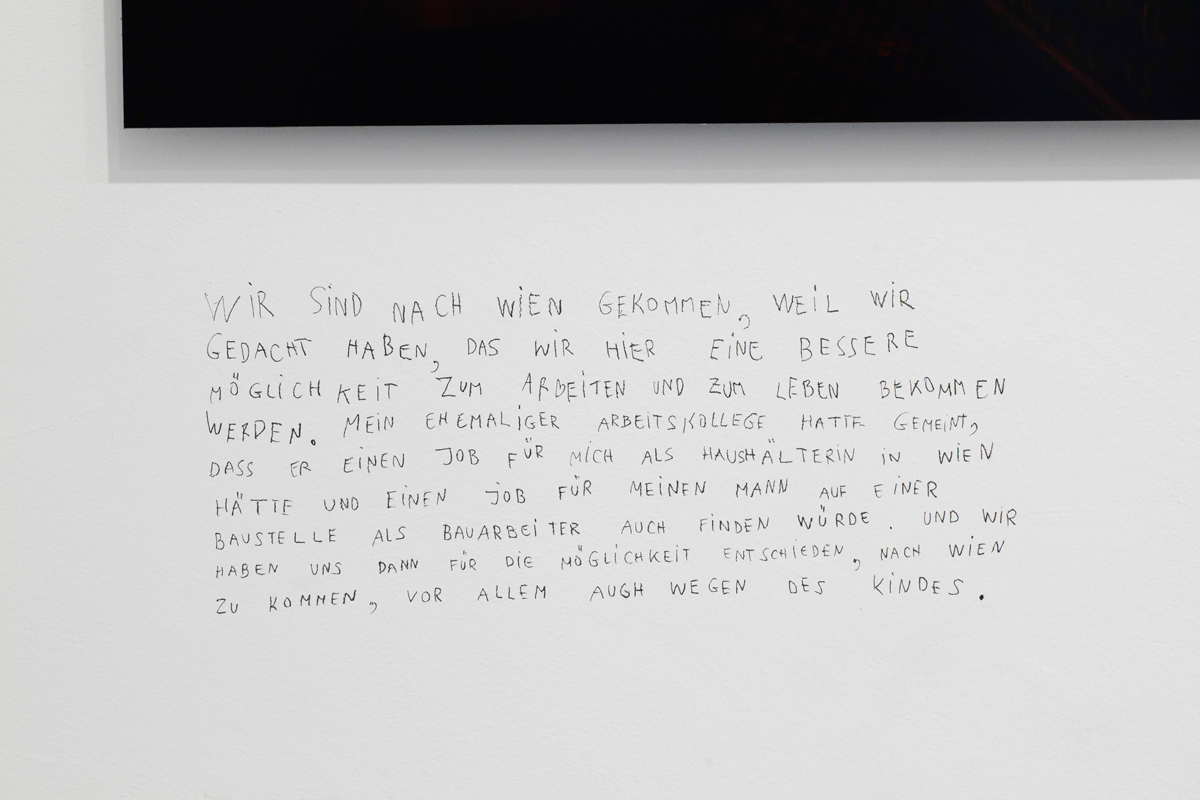 WIR SIND NACH WIEN GEKOMMEN, WEIL WIR
GEDACHT HABEN, DAS WIR HIER EINE BESSERE
MÖGLICHKEIT ZUM ARBEITEN UND ZUM LEBEN BEKOMMEN
WERDEN. MEIN EHEMALIGER ARBEITSKOLLEGE HATTE GEMEINT,
DASS ER EINEN JOB FÜR MICH ALS HAUSHÄLTERIN IN WIEN
HÄTTE UND EINEN JOB FÜR MEINEN MANN AUF EINER
BAUSTELLE ALS BAUARBEITER AUCH FINDEN WÜRDE. UND WIR
HABEN UNS DANN FÜR DIE MÖGLICHKEIT ENTSCHIEDEN, NACH WIEN
ZU KOMMEN, VOR ALLEM AUCH WEGEN DES KINDES.